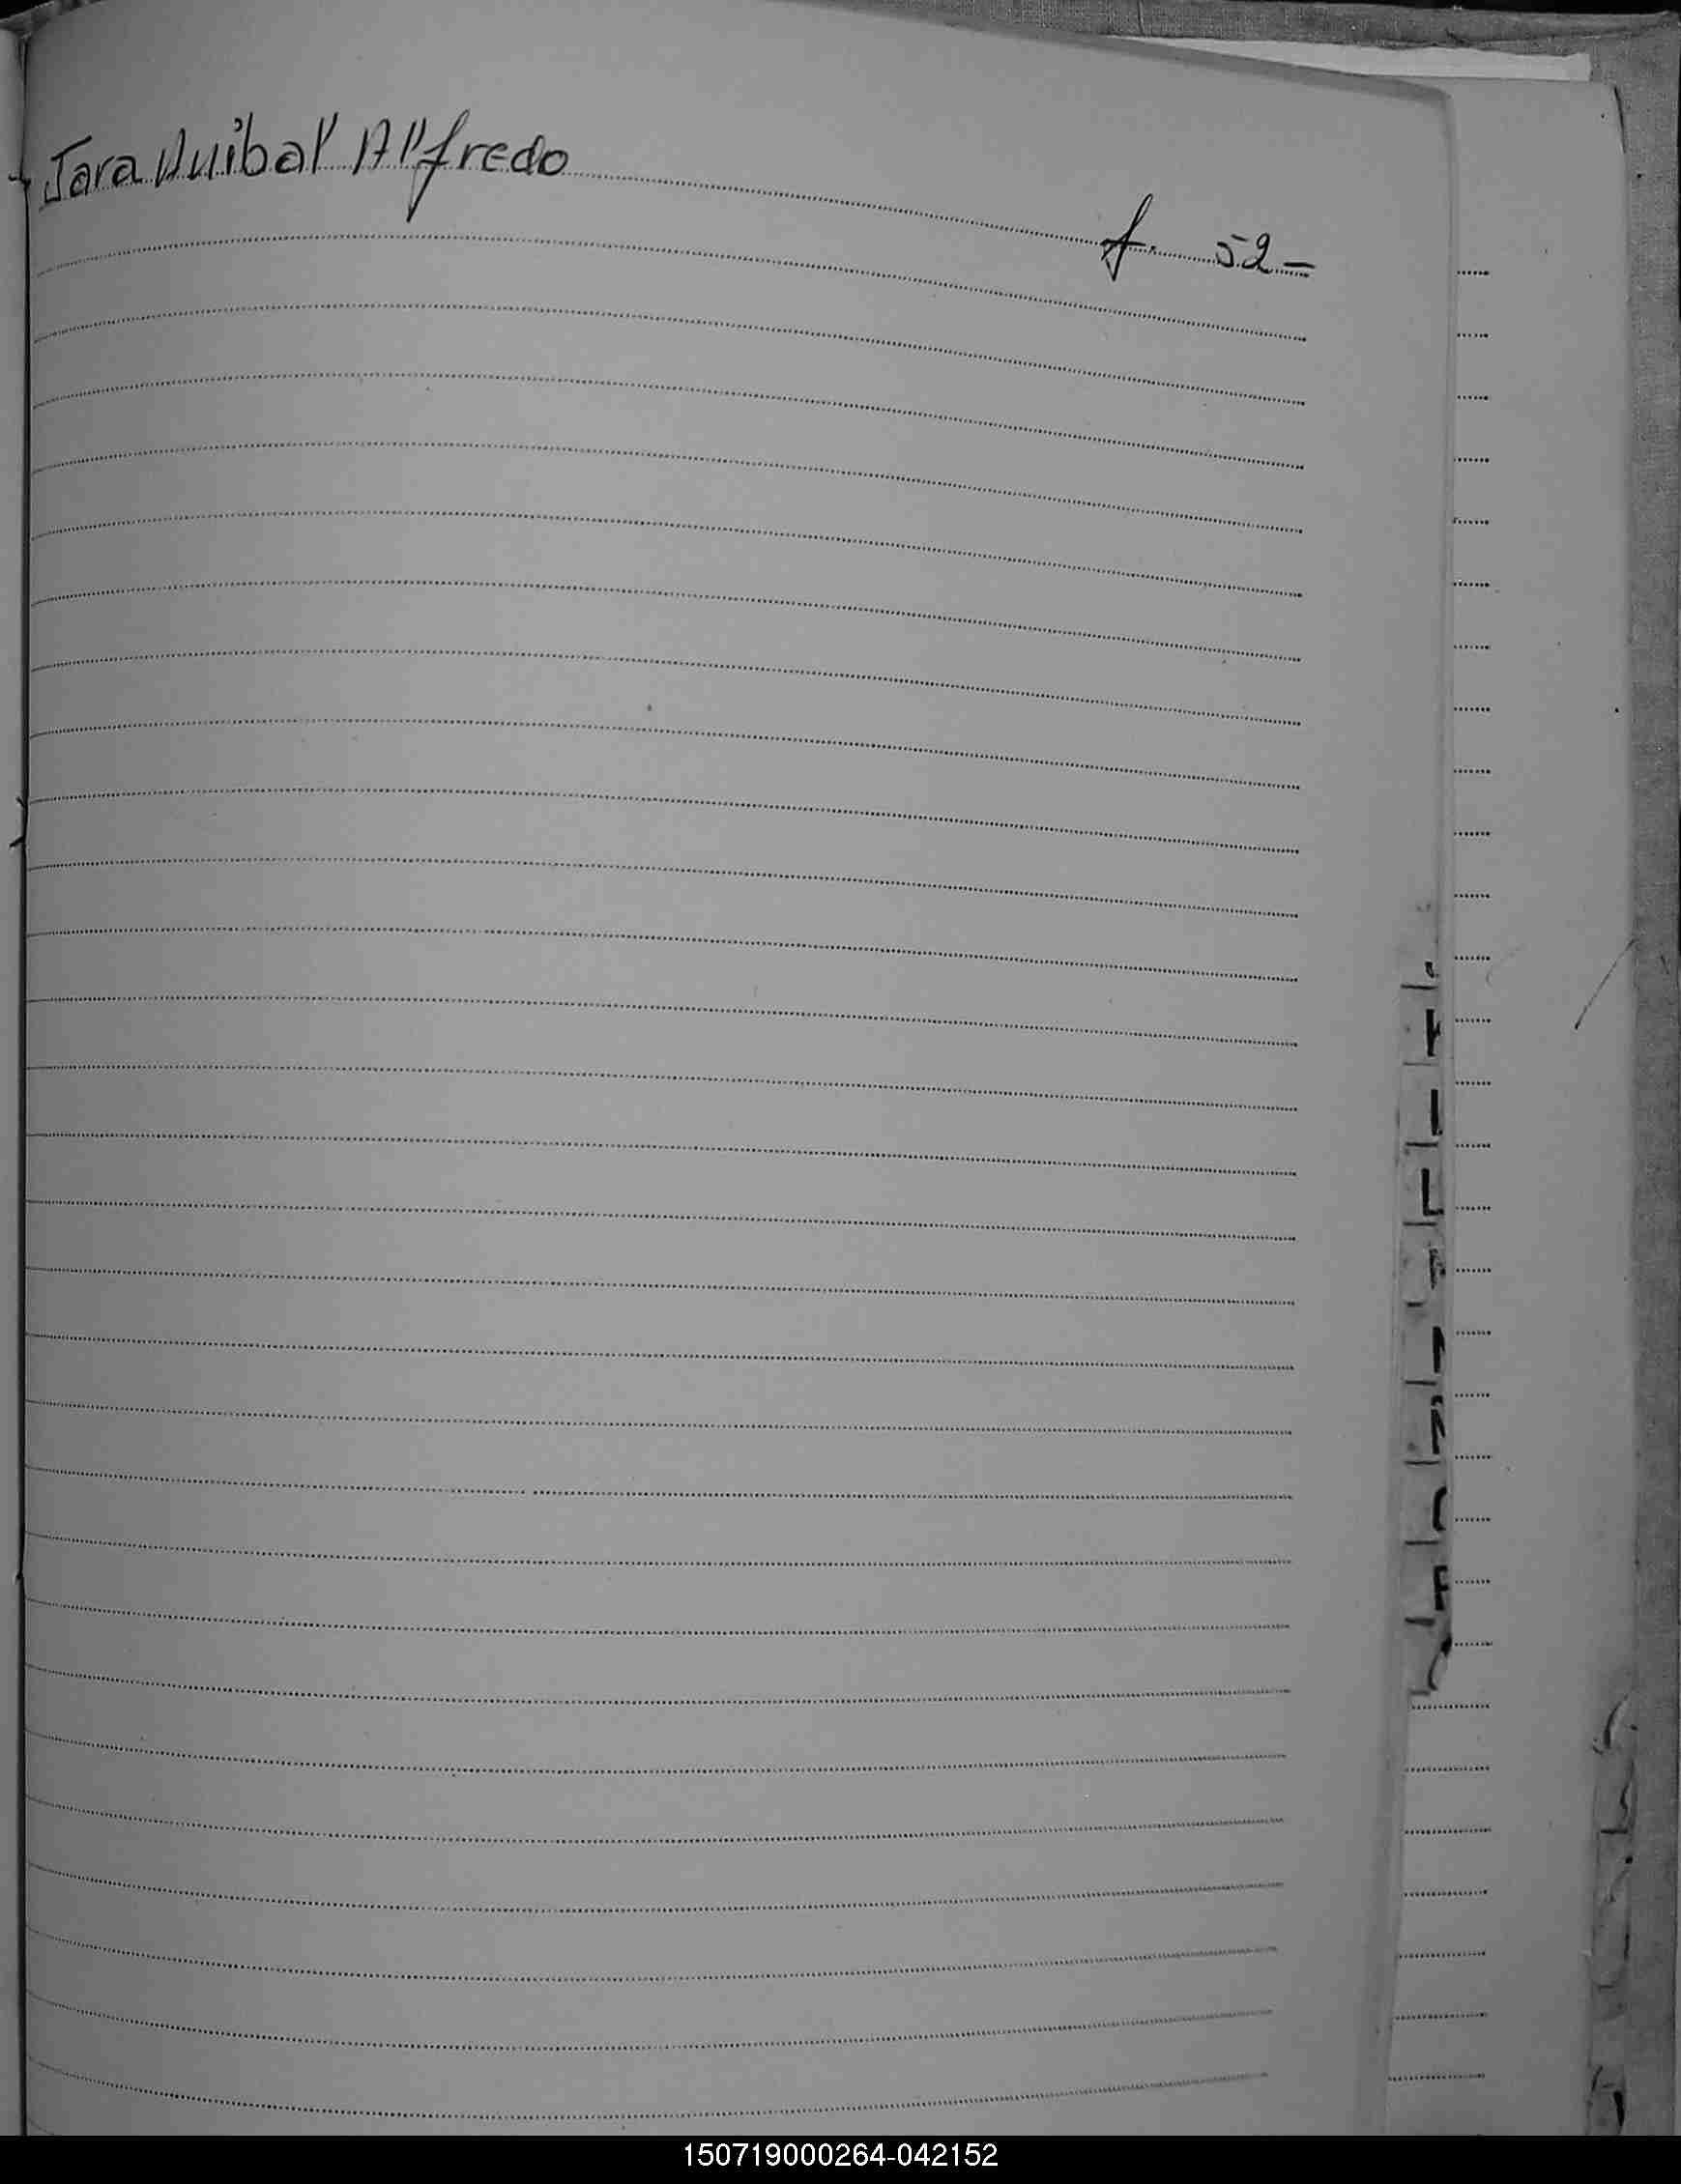 Jara Anibal Alfredo
f. 52-
150719000264-042152